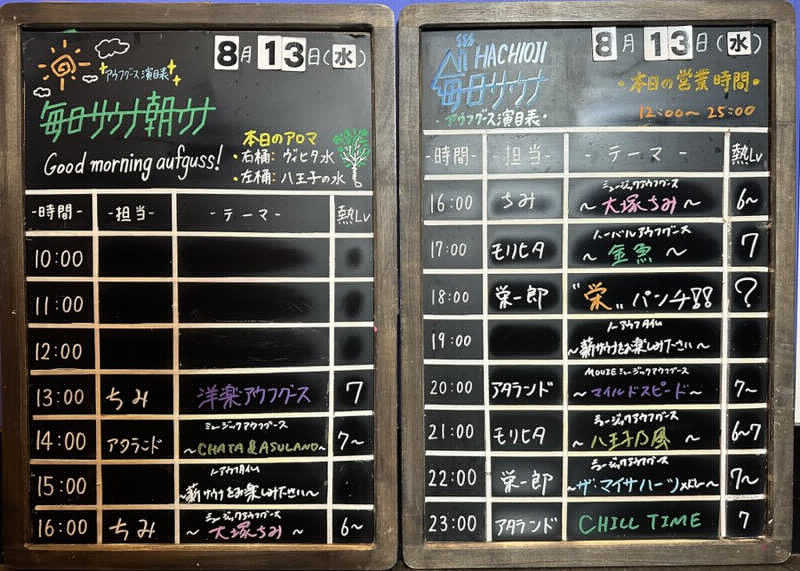 8月13日(水)
アウフグース演目表
毎日サウナ朝ウナ
Good morning aufguss!
本日のアロマ
・右桶: ヴィヒタ水
・左桶: 八王子の水
-時間- -担当- -テーマ- 熱Lv
10:00
11:00
12:00
13:00 ちみ 洋楽アウフグース 7
14:00 アタランド ミュージックアウフグース 7~
~CHATA&ASULAND~
15:00 ノーアウフタイム
~薪サウナをお楽しみ下さい~
16:00 ちみ ミュージックアウフグース 6~
~大塚ちみ~
HACHIOJI
毎日サウナ
・アウフグース演目表・
8月13日(水)
・本日の営業時間・
12:00~25:00
-時間- -担当- -テーマ- 熱Lv
16:00 ちみ ミュージックアウフグース 6~
~大塚ちみ~
17:00 モリヒタ ハーバルアウフグース 7
~金魚~
18:00 栄一郎 "栄"パンチ!!!! ?
19:00 ノーアウフタイム
~薪サウナをお楽しみ下さい~
20:00 アタランド MOVIEミュージックアウフグース 7~
~マイルドスピード~
21:00 モリヒタ ミュージックアウフグース 6~7
~八王子乃風~
22:00 栄一郎 ミュージックアウフグース 7~
~ザ・マイサハーツメドレー~
23:00 アタランド CHILL TIME 7